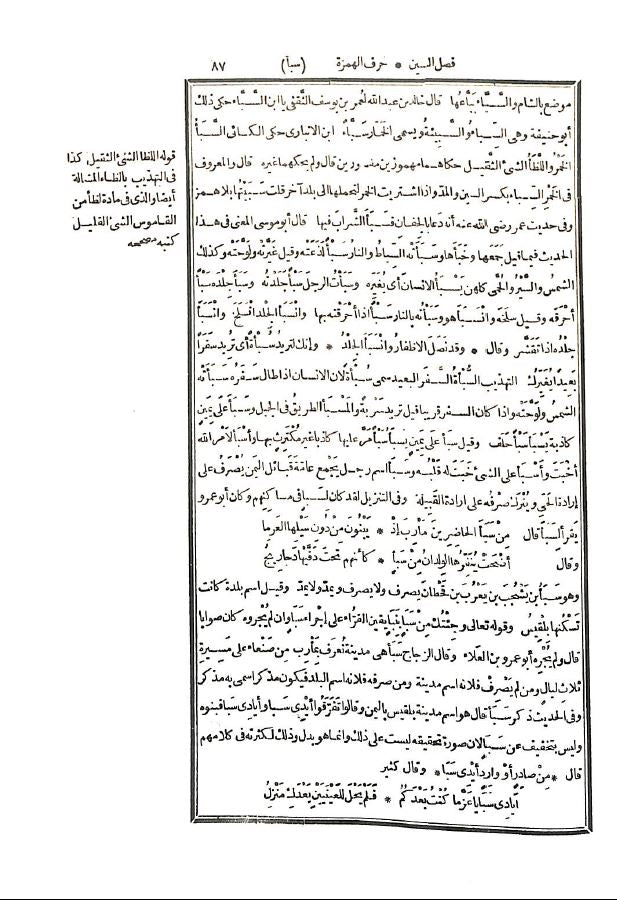 فصل السين * حرف الهمزة (سبأ) ٨٧
موضع بالشام والسَّبَّاءُ بَيَّاعُها قال خالد بن عبد الله لعمر بن يوسف الثقفي يا ابن السَّبَّاء حكى ذلك
أبو حنيفة وهى السِّباءُ والسَّبِيئةُ ويسمى الخَمَّارُ سَبَّاءً ابن الانبارى حكى الكسائى السَّبَأُ
الخَمْرُ واللَّظَأُ الشئُ الثَّقيل حكاهما مهموزين مقصورين قال ولم يحكهما غيره قال والمعروف
فى الخَمْرِ السِّباءُ بكسر السين والمدّ واذا اشتريت الخمر لتحملها الى بلد آخر قلت سَبَيْتُها بلا همز
وفى حديث عمر رضى الله عنه أنه دعا بالجِفان فَسَبَأَ الشَّرابَ فيها قال أبو موسى المعنى فى هذا
الحديث فيما قيل جَمَعَها وخَبَأَها وسَبَأَتْه السِّياطُ والنارُ سَبْأً لَذَعَتْه وقيل غَيَّرَتْه ولَوَّحَتْه وكذلك
الشمسُ والسَّيْرُ والحُمَّى كلهن يَسْبَأُ الانسانَ أى يُغَيِّره وسَبَأْتُ الرجلَ سَبْأً جَلَدْتُه وسَبَأَ جِلْدَه سَبْأً
أَحْرَقَه وقيل سلَخَه وانْسَبَأَ هو وسَبَأْتُه بالنار سَبْأً اذا أَحْرَقْته بها وانْسَبَأَ الجِلْد انْسَلَخَ وانْسَبَأَ
جِلْدُه اذا تقَشَّر وقال * وقد نَصَلَ الاظفارُ وانْسَبَأَ الجِلْدُ * وانك لتريد سُبْأَةً أى تُريد سَفَرًا
بعيدًا يُغَيِّرُك التهذيب السُّبْأَةُ السَّفر البعيد سمى سُبْأَةً لان الانسان اذا طال سَفَرُه سَبَأَتْه
الشمسُ ولَوَّحَتْه واذا كان السفر قريبا قيل تريد سَرْبةً والمَسْبَأُ الطريقُ فى الجبل وسَبَأَ على يَمِينٍ
كاذبة يَسْبَأُ سَبْأً حَلَف وقيل سَبَأَ على يَمِينٍ يَسْبَأُ سَبْأً مَرَّ عليها كاذبا غير مُكْتَرِثٍ بها وأَسْبَأَ لأَمر الله
أَخْبَتَ وأَسْبَأَ على الشئ خَبَتَ له قَلْبُه وسَبَأُ اسم رجل يَجْمع عامّةَ قبائل اليَمن يُصْرَفُ على
إرادة الحَىّ ويُتْرَك صَرْفُه على ارادة القَبيلة وفى التنزيل لقد كان لسَبَإٍ فى مساكنهم وكان أبو عمرو
يَقرأُ لسَبَأَ قال مِنْ سَبَأَ الحاضِرِينَ مَأْرِبَ إذْ * يَبْنُونَ مِنْ دُونِ سَيْلِها العَرِما
وقال أَضْحَتْ يُنَفِّرُها الوِلْدانُ مِنْ سَبَإٍ * كأَنهم تحتَ دَفَّيْها دَحارِيجُ
وهو سَبَأُ بن يَشْجُبَ بن يَعْرُبَ بن قَحْطانَ يصرف ولا يصرف ويمدّ ولا يمدّ وقيل اسم بلدة كانت
تَسْكُنها بِلْقِيسُ وقوله تعالى وجِئْتُك مِنْ سَبَإٍ بِنَبَإٍ يَقِين القرّاءُ على إجراء سَبَإٍ وان لم يُجْروه كان صوابا
قال ولم يُجْرِه أبو عمرو بن العَلاء وقال الزجاج سَبَأُ هى مدينة تُعرَف بمَأْرِبَ من صَنْعاءَ على مَسيرةِ
ثلاث ليالٍ ومن لم يَصْرِفْ فلانه اسم مدينة ومن صرفه فلانه اسم البلد فيكون مذكرا سمى به مذكر
وفى الحديث ذكر سَبَأَ قال هو اسم مدينة بلقيس باليمن وقالوا تَفَرَّقُوا أَيْدِى سَبا وأَيادِى سَبا فبنوه
وليس بتخفيف عن سَبَإٍ لان صورة تحقيقه ليست على ذلك وانما هو بدل وذلك لكثرته فى كلامهم
قال * مِنْ صادِرٍ أَوْ وارِدٍ أَيْدِى سَبَا * وقال كثير
أَيادِى سَبَا يا عَزَّ ما كُنْتُ بَعْدَكُمْ * فَلَمْ يَحْلَ للعَيْنَيْنِ بَعْدَكِ مَنْزِلُ
قوله اللظأ الشئ الثقيل كذا
فى التهذيب بالظاء المشالة
أيضا والذى فى مادة لظأ من
القاموس الشئ القليل
كتبه مصححه